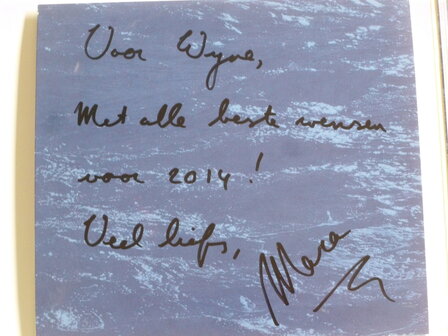 Voor Wyne,
Met alle beste wensen
voor 2014!
Veel liefs,
Mara